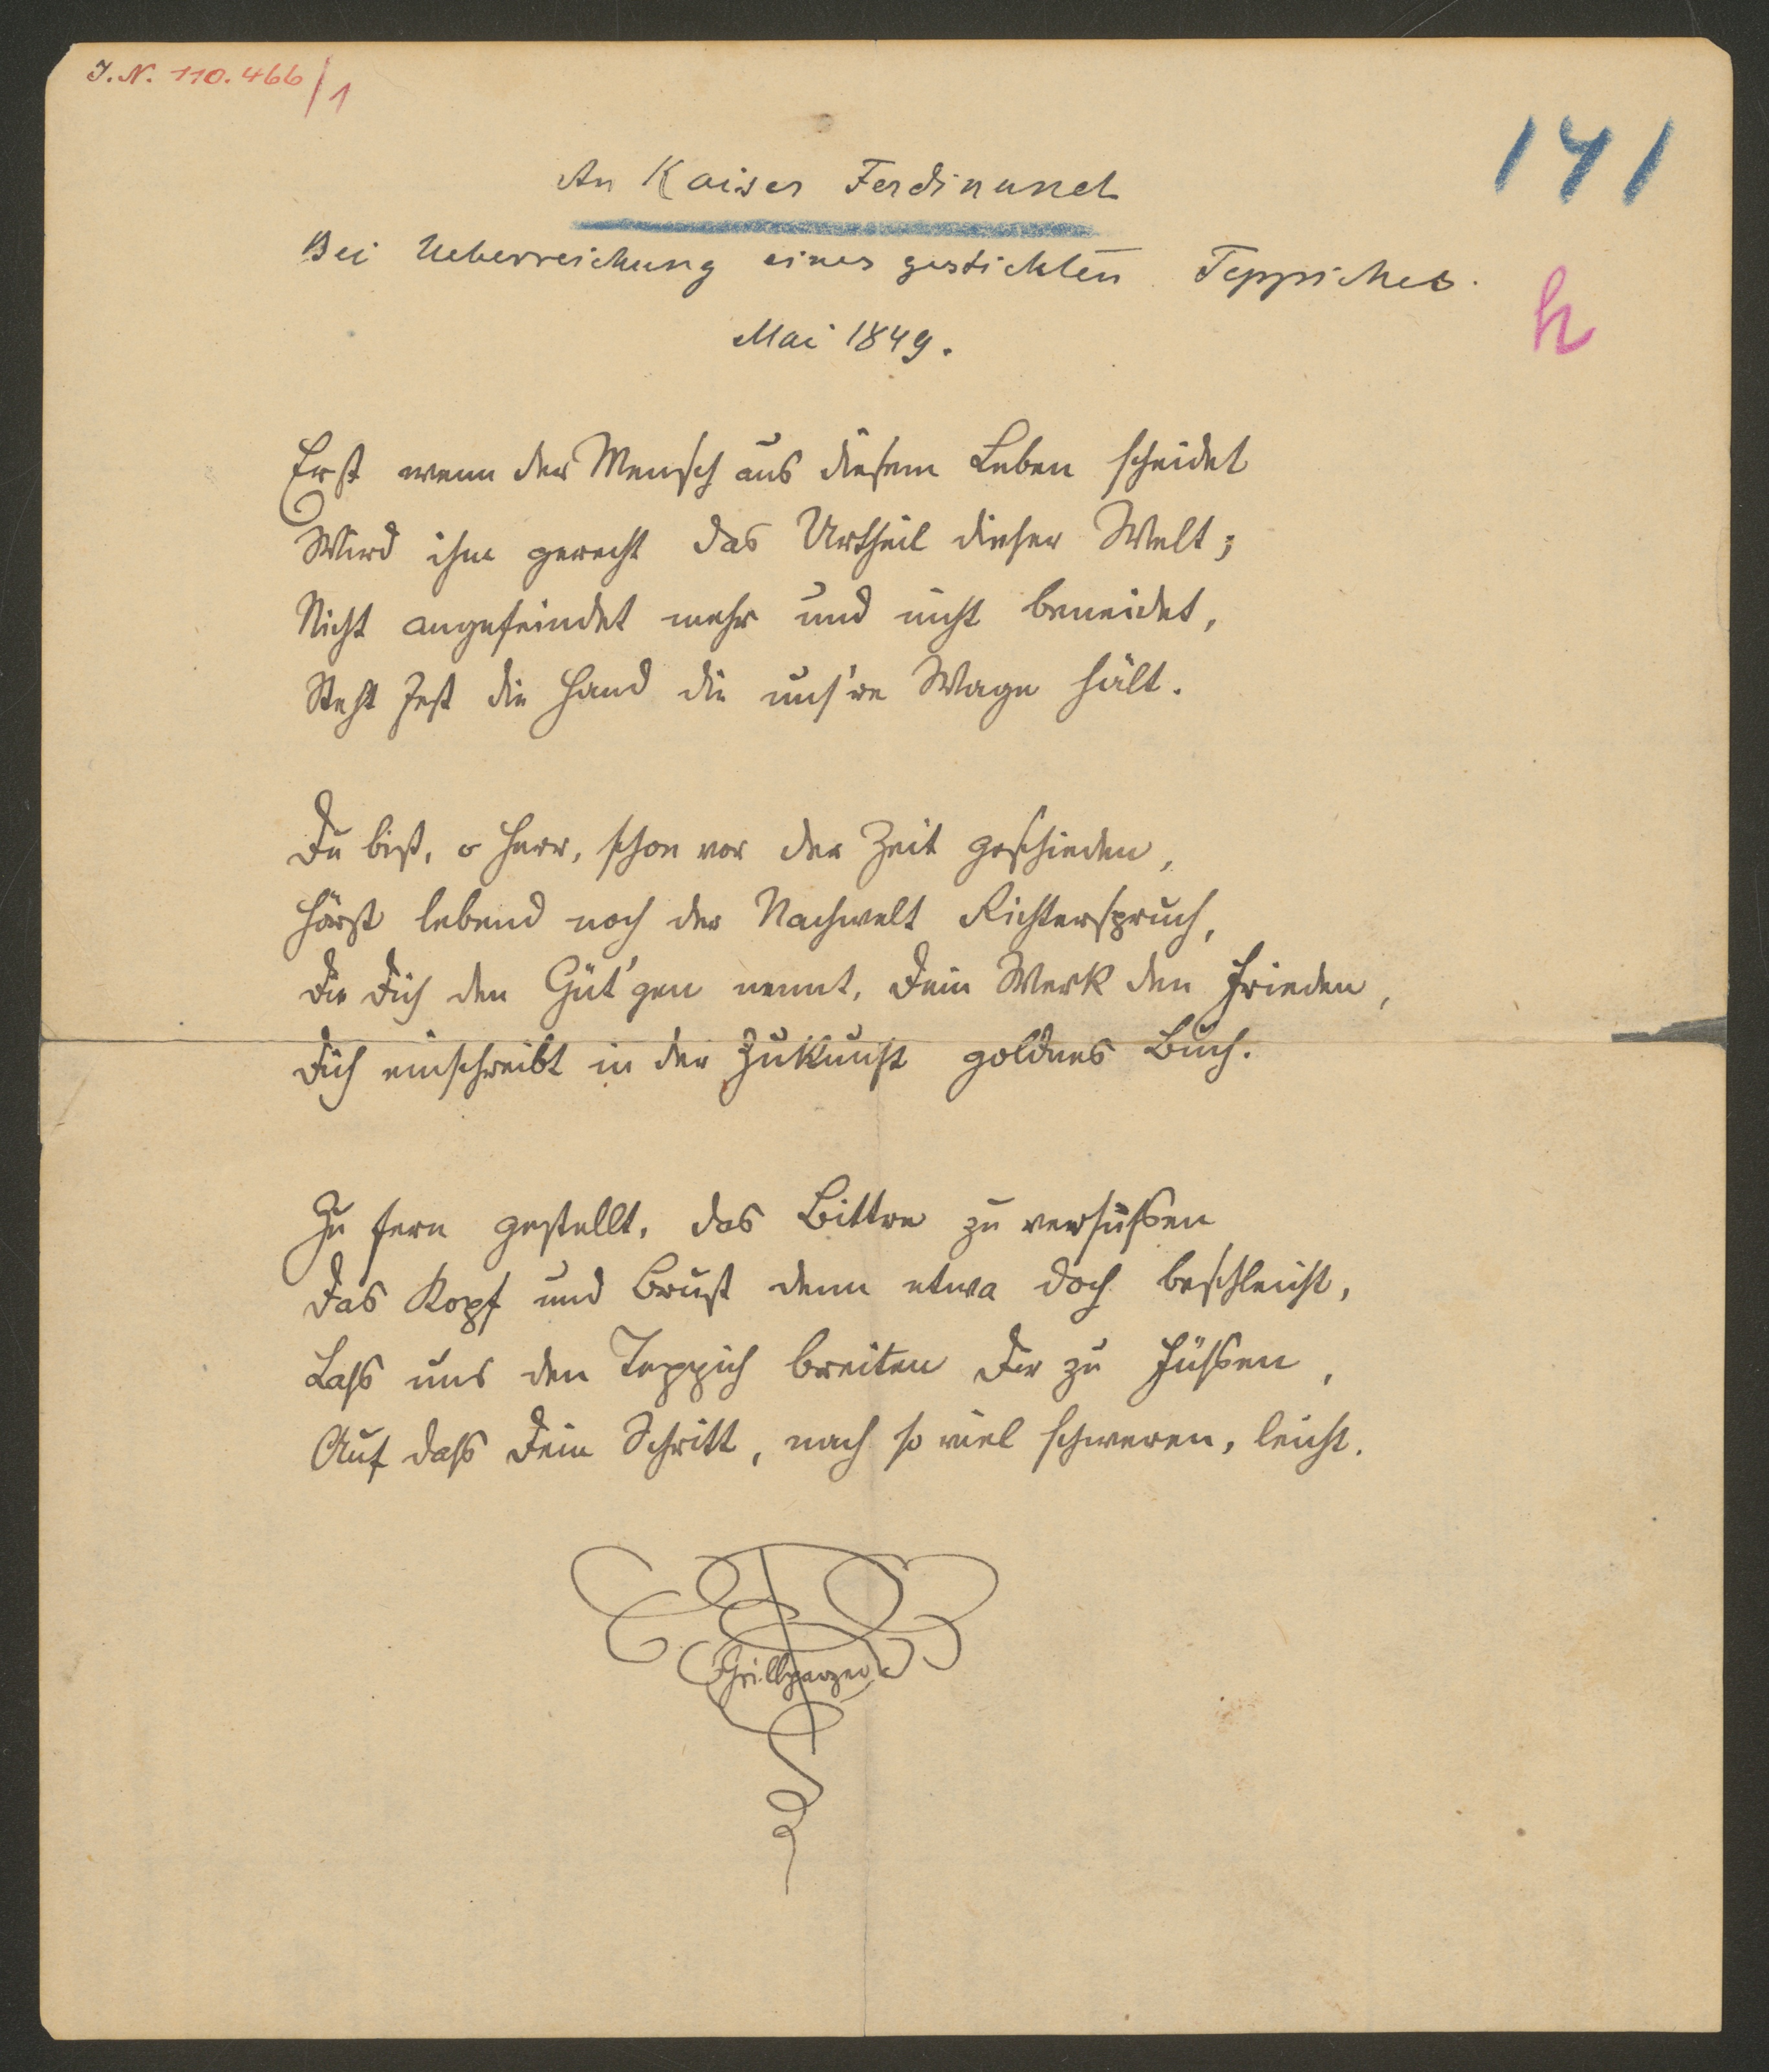 J. N. 110.466/1
141
An Kaiser Ferdinand
Bei Ueberreichung eines gestickten Teppiches.
h
Mai 1849.
Erst wenn der Mensch aus diesem Leben scheidet
Wird ihm gerecht das Urtheil dieser Welt;
Nicht angefeindet mehr und nicht beneidet,
Steht fest die Hand die uns're Wage hält.
Du bist, o Herr, schon vor der Zeit geschieden,
Hörst lebend noch der Nachwelt Richterspruch,
Die Dich den Güt'gen nennt, Dein Werk den Frieden,
Dich einschreibt in der Zukunft goldnes Buch.
Zu fern gestellt, das Bittre zu versüßen
Das Kopf und Brust denn etwa doch beschleicht,
Laß uns den Teppich breiten Dir zu Füßen,
Auf daß Dein Schritt, nach so viel schweren, leicht.
Grillparzer